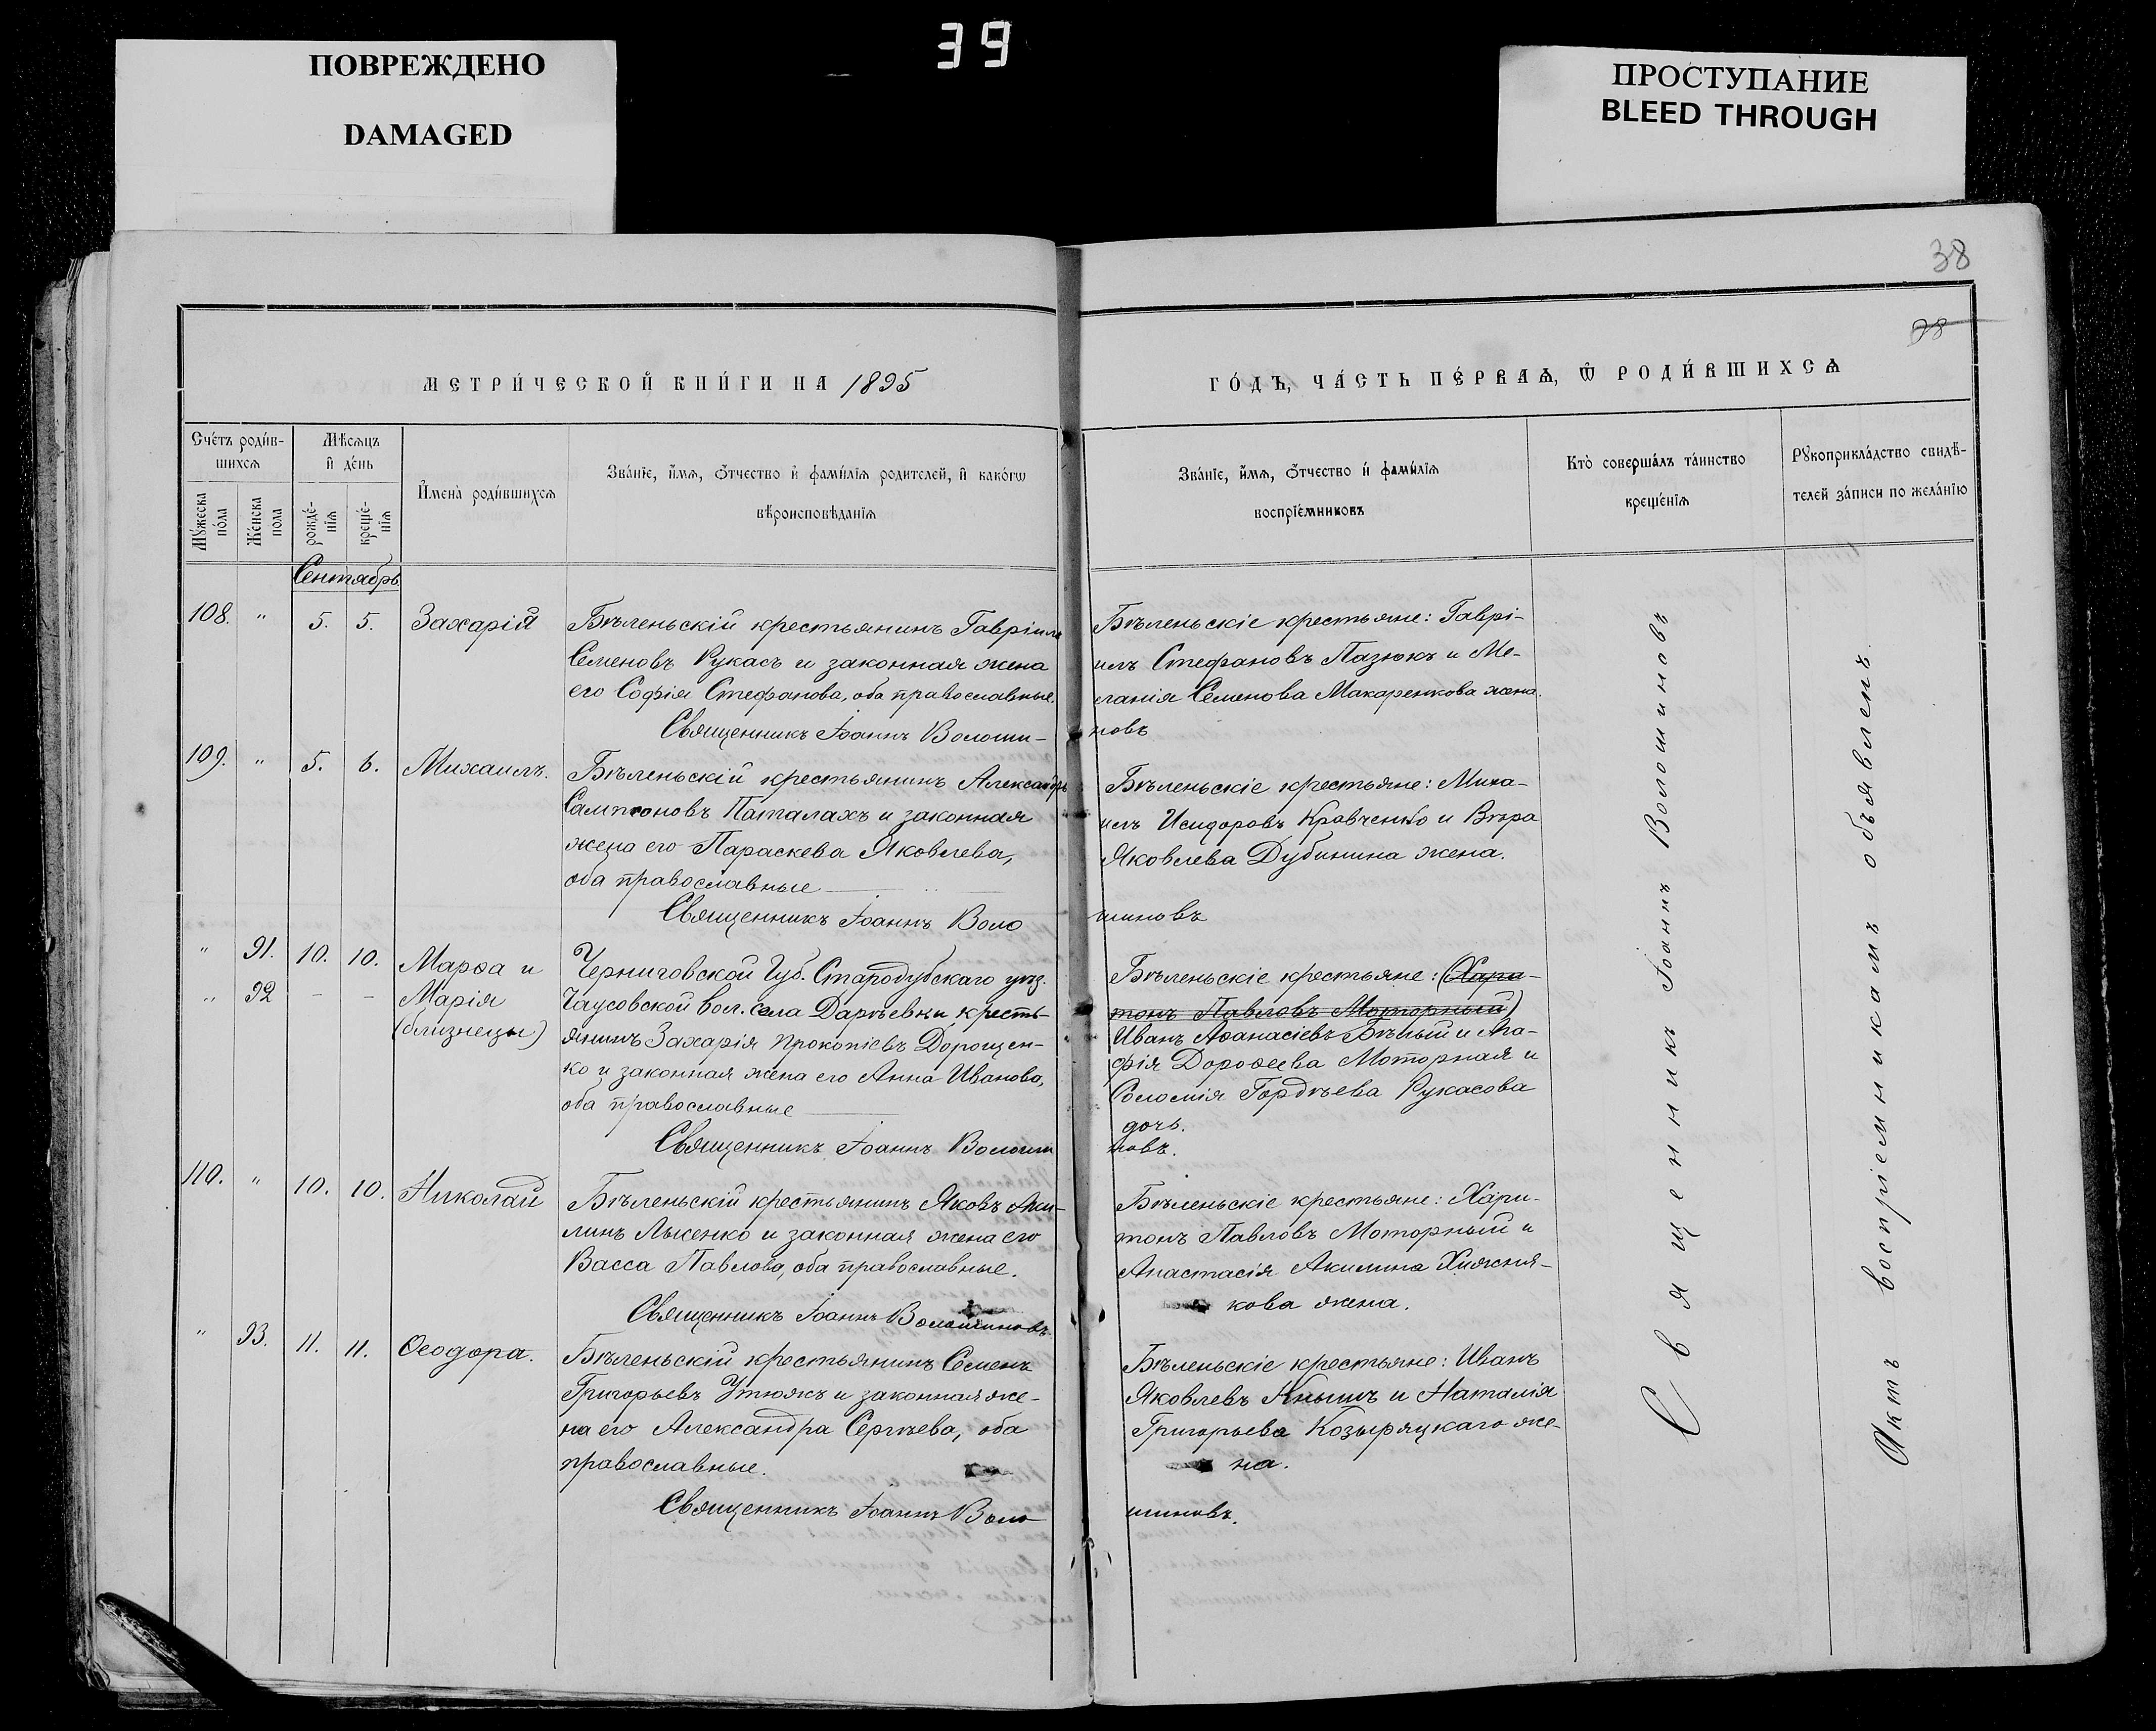 39
ПОВРЕЖДЕНО
DAMAGED
ПРОСТУПАНИЕ
BLEED THROUGH
38
МЕТРИ́ЧЕСКОЙ КНИ́ГИ НА 1895
ГО́ДЪ, ЧА́СТЬ ПЕ́РВАѦ, Ѿ РОДИ́ВШИХСѦ
Сче́тъ роди́в-
шихсѧ
Му́жеска
по́ла
Же́нска
пола
Мѣ́сѧцъ
и҆ де́нь
рожде́-
нїѧ
креще́-
нїѧ
И҆мена̀ роди́вшихсѧ
Зва́нїе, и҆́мѧ, ѻ҆́тчество и҆ фами́лїѧ родителей, и҆ како́гѡ
вѣроисповѣданїѧ
Зва́нїе, и҆́мѧ, ѻ҆́тчество и҆ фами́лїѧ
воспрїе́мниковъ
Кто̀ соверша́лъ та́инство
креще́нїѧ
Рꙋкоприкла́дство свидѣ́-
телей за́писи по жела́нїю
Сентябрь
108. " 5. 5. Захарій
Бѣленьскій крестьянинъ Гавріилъ
Семеновъ Рукасъ и законная жена
его Софія Стефанова, оба православные.
Священникъ Іоаннъ Волоши-
Бѣленьскіе крестьяне: Гаврі-
илъ Стефановъ Пазюкъ и Ме-
ланія Семенова Макаренкова жена.
новъ
109. " 5. 6. Михаилъ.
Бѣленьскій крестьянинъ Александръ
Сампсоновъ Паталахъ и законная
жена его Параскева Яковлева,
оба православные
Священникъ Іоаннъ Воло
Бѣленьскіе крестьяне: Миха-
илъ Исидоровъ Кравченко и Вѣра
Яковлева Дубинина жена.
шиновъ
" 91. 10. 10. Марѳа и
" 92 - - Марія
(близнецы)
Черниговской Губ. Стародубскаго уѣз.
Чаусовской вол. села Дарѣевки кресть-
янинъ Захарія Прокопіевъ Дорощен-
ко и законная жена его Анна Иванова,
оба православные
Священникъ Іоаннъ Волоши
Бѣленьскіе крестьяне: (Хари-
тонъ Павловъ Моторный)
Иванъ Аѳанасіевъ Бѣлый и Ага-
фія Дороѳеева Моторная и
Соломія Гордѣева Рукасова
дочь.
новъ.
110. " 10. 10. Николай
Бѣленьскій крестьянинъ Яковъ Аки-
линъ Лысенко и законная жена его
Васса Павлова, оба православные.
Священникъ Іоаннъ Волошиновъ
Бѣленьскіе крестьяне: Хари-
тонъ Павловъ Моторный и
Анастасія Акилина Хижня-
кова жена.
" 93. 11. 11. Ѳеодора.
Бѣленьскій крестьянинъ Семенъ
Григорьевъ Утюжъ и законная же-
на его Александра Сергѣева, оба
православные.
Священникъ Іоаннъ Воло
Бѣленьскіе крестьяне: Иванъ
Яковлевъ Кнышъ и Наталія
Григорьева Козыряцкаго же-
на.
шиновъ.
Священникъ Іоаннъ Волошиновъ
Актъ воспріемникамъ объявленъ.